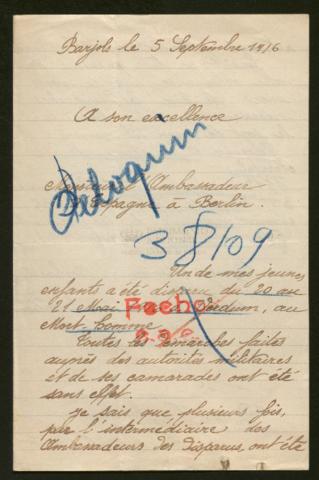 Barjols le 5 Septembre 1916
A son excellence
Monsieur l'Ambassadeur
d'Espagne à Berlin.
38109
Un de mes jeunes
enfants a été disparu du 20 au
21 Mai Verdun, au
Mort-homme
Toutes les démarches faites
auprès des autorités militaires
et de ses camarades ont été
sans effet.
Je sais que plusieurs fois,
par l'intermédiaire des
Ambassadeurs des disparus, ont été